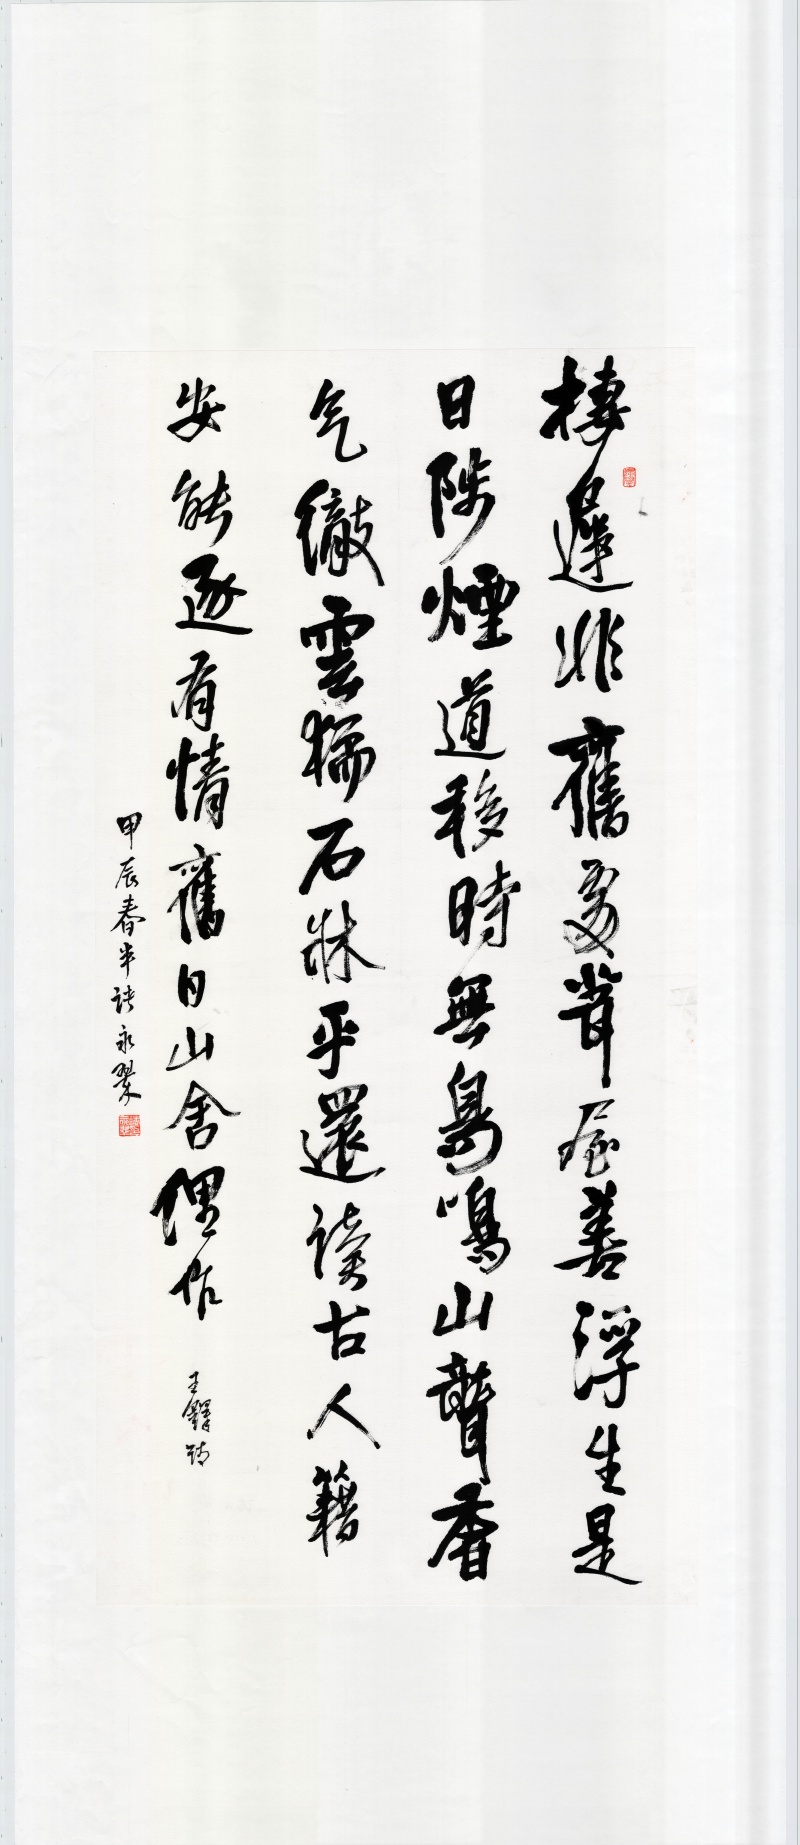 棲遲非舊處茸屋善浮生是
日陟煙道移時無鳥鳴山聲香
气徹雲石牀平還讀古人籍
安能逐有情舊日山舍俚作
王鐸詩
甲辰春半永翠